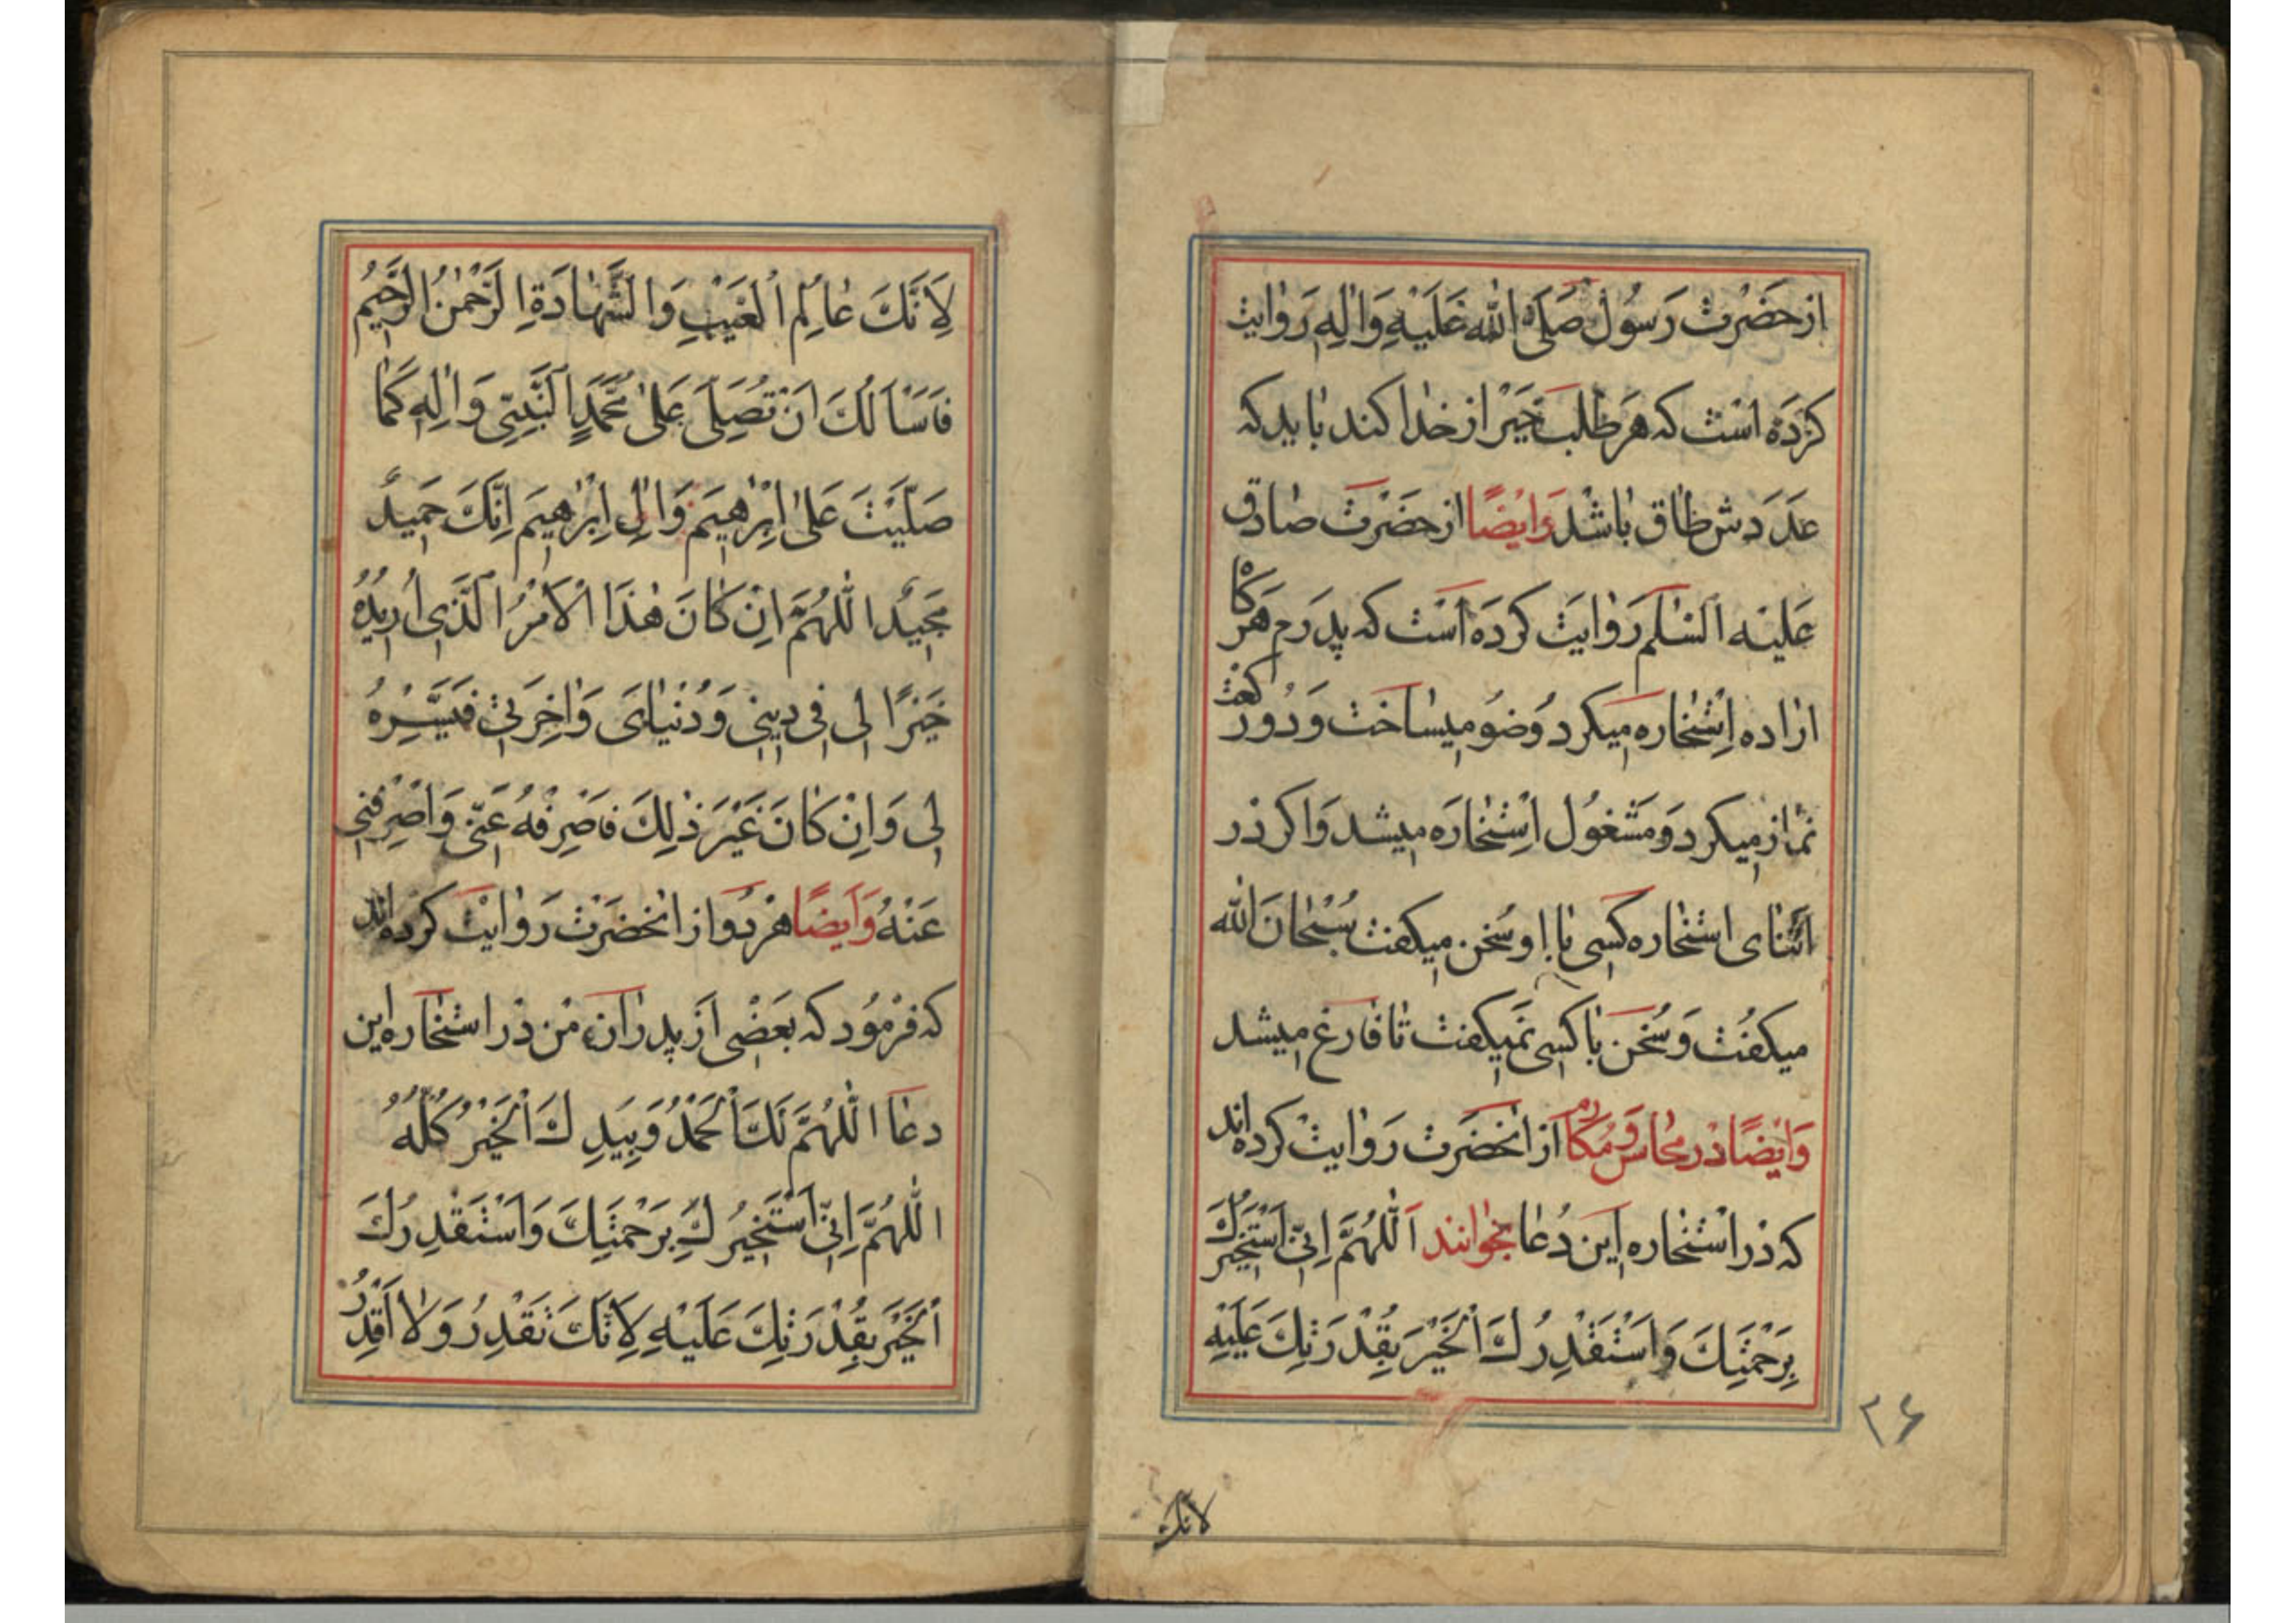 از حضرت رسول صلی الله علیه واله روایت
کرده است که هر طلب خیر از خدا کند باید که
عددش طاق باشد وایضا از حضرت صادق
علیه السلم روایت کرده است که پدرم هرکاه
اراده استخاره میکرد وضو میساخت ودو رکعت
نماز میکرد ومشغول استخاره میشد واکر در
اثنای استخاره کسی با او سخن میکفت سبحان الله
میکفت وسخن با کسی نمیکفت تا فارغ میشد
وایضا در محاسن ومکارم از انحضرت روایت کرده اند
که در استخاره این دعا بخوانند اللهم انی استخیرك
برحمتك واستقدرك الخیر بقدرتك علیه
۳۶
لانك
لانك عالم الغیب والشهادة الرحمن الرحیم
فاسألك ان تصلی علی محمد النبی واله کما
صلیت علی ابرهیم وال ابرهیم انك حمید
مجید اللهم ان کان هذا الامر الذی اریده
خیرا لی فی دینی ودنیای واخرتی فیسره
لی وان کان غیر ذلك فاصرفه عنی واصرفنی
عنه وایضا هر دو از انحضرت روایت کرده اند
که فرمود که بعضی از پدران من در استخاره این
دعا اللهم لك الحمد وبیدك الخیر کله
اللهم انی استخیرك برحمتك واستقدرك
الخیر بقدرتك علیه لانك تقدر ولا اقدر